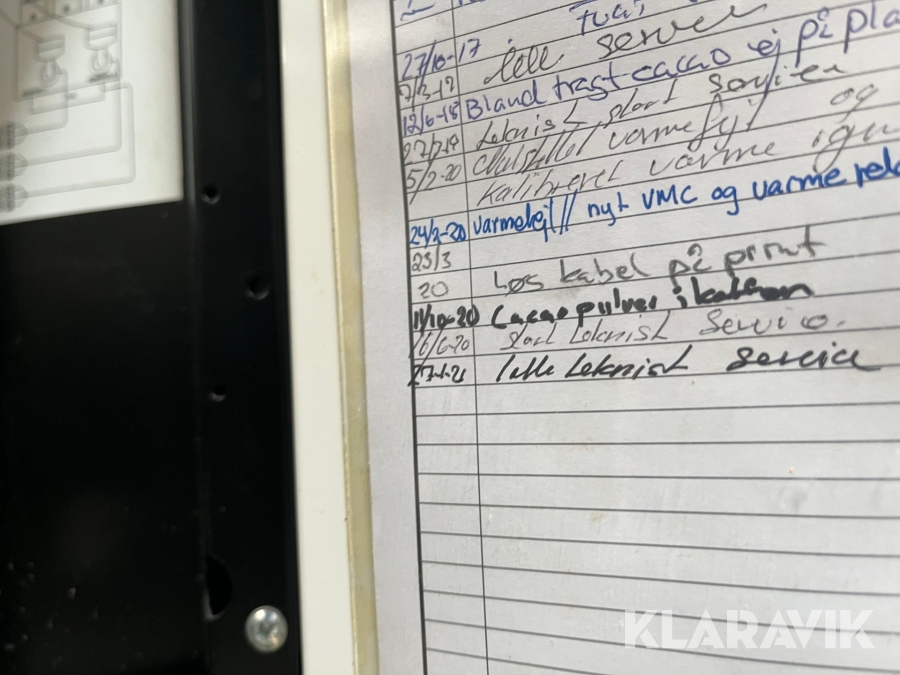 27/10-17
lille server
12/6-18 Bland tragt cacao ej på pla
Teknisk stort servicen
5/2-20 og
kalibreret varme igen
24/2-20 varmefejl // nyt VMC og varme rele
23/3
20 Løs kabel på print
11/10-20 Cacao pulver i
16/6-20 stort teknisk Service.
27-1-21 lille teknisk service
KLARAVIK